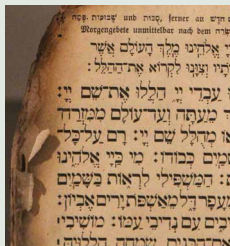 סֻכּוֹת und שָׁבוּעוֹת, ferner an
Morgengebete unmittelbar nach dem
אֱלֹהֵינוּ מֶלֶךְ הָעוֹלָם אֲשֶׁר
וְצִוָּנוּ לִקְרוֹא אֶת־הַהַלֵּל:
עַבְדֵי יְיָ הַלְלוּ אֶת־שֵׁם יְיָ:
מֵעַתָּה וְעַד־עוֹלָם: מִמִּזְרַח־
מְהֻלָּל שֵׁם יְיָ: רָם עַל־כָּל־
כְּבוֹדוֹ: מִי כַּיְיָ אֱלֹהֵינוּ
הַמַּשְׁפִּילִי לִרְאוֹת בַּשָּׁמַיִם
מֵעָפָר דָּל מֵאַשְׁפֹּת יָרִים אֶבְיוֹן:
עִם נְדִיבֵי עַמּוֹ: מוֹשִׁיבִי